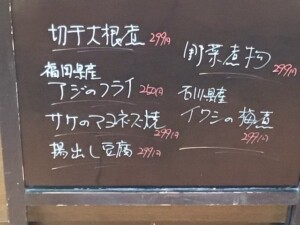 切干大根煮 299円
福岡県産
アジのフライ
サケのマヨネーズ焼 299円
揚出し豆腐 299円
野菜煮物 299円
石川県産
イワシの梅煮 299円